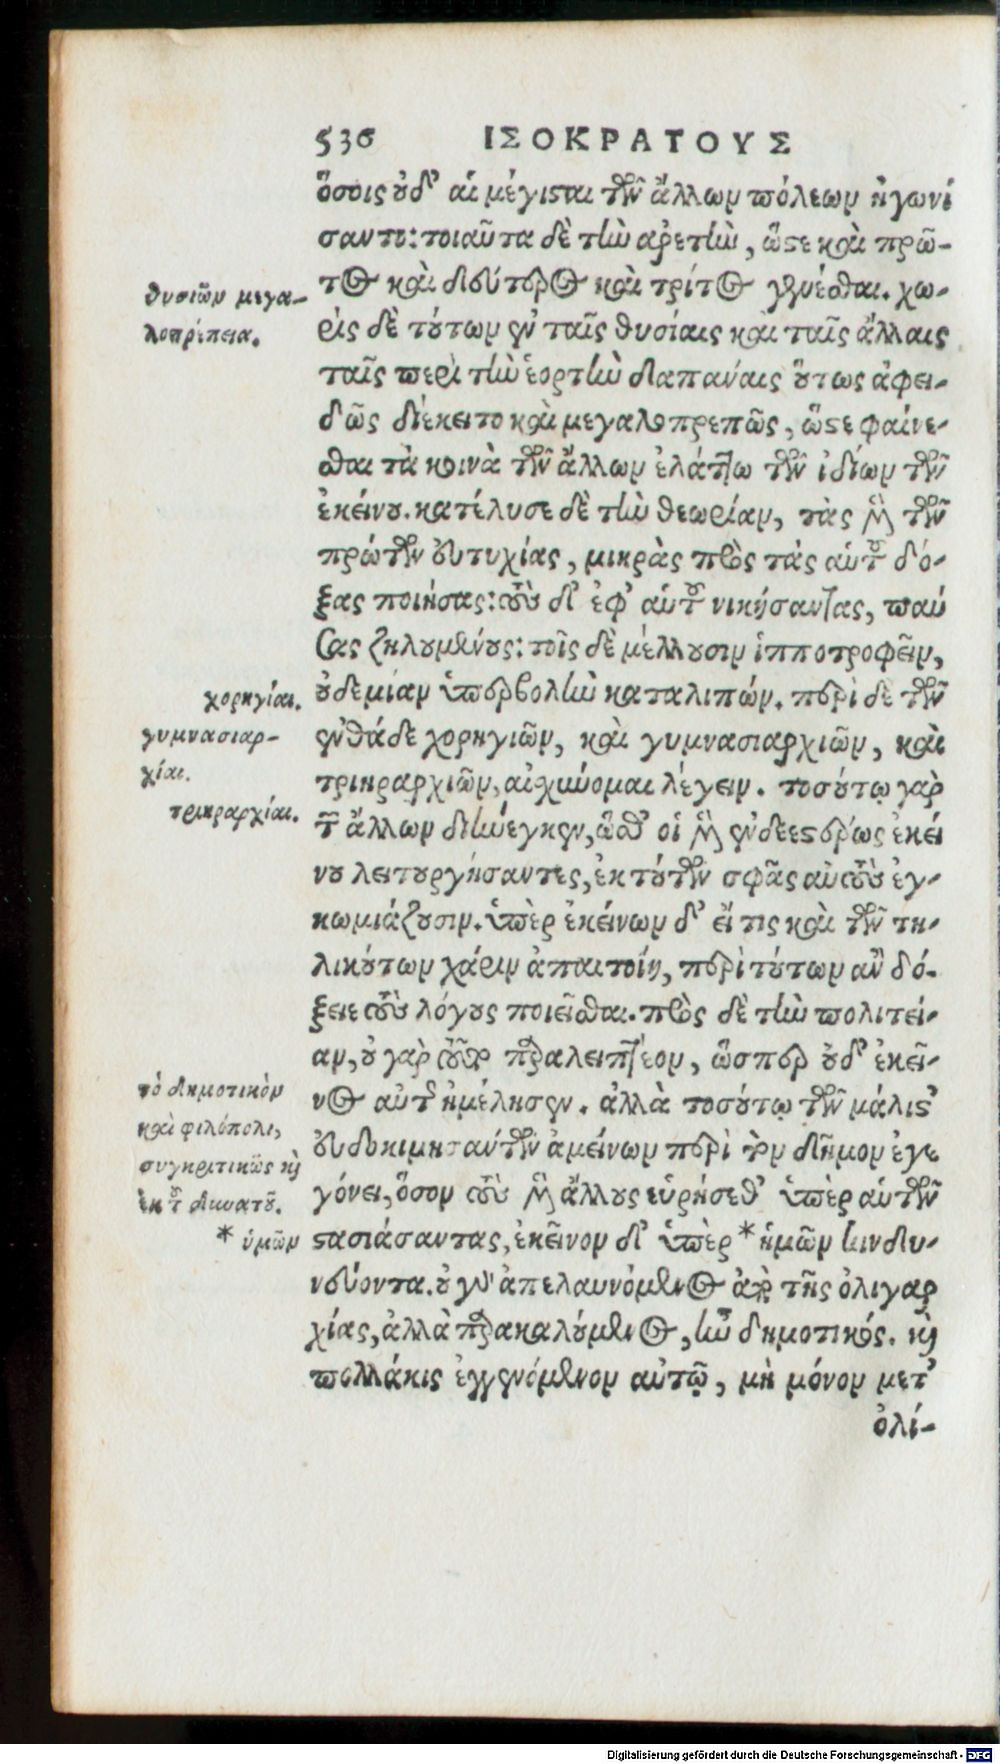 536 ΙΣΟΚΡΑΤΟΥΣ
ὅσοις οὐδ' αἱ μέγισται τῶν ἄλλων πόλεων ἠγωνί
σαντο: τοιαῦτα δὲ τὴν ἀρετὴν, ὥστε καὶ πρῶ-
τος καὶ δεύτερος καὶ τρίτος γενέσθαι. χω-
ρὶς δὲ τούτων ἐν ταῖς θυσίαις καὶ ταῖς ἄλλαις
ταῖς περὶ τὴν ἑορτὴν δαπάναις οὕτως ἀφει-
δῶς διέκειτο καὶ μεγαλοπρεπῶς, ὥστε φαίνε-
σθαι τὰ κοινὰ τῶν ἄλλων ἐλάττω τῶν ἰδίων τῶν
ἐκείνου. κατέλυσε δὲ τὴν θεωρίαν, τὰς μὲν τῶν
πρώτων εὐτυχίας, μικρὰς πρὸς τὰς αὑτοῦ δό-
ξας ποιήσας: τοὺς δ' ἐφ' αὑτοῦ νικήσαντας, παύ
σας ζηλουμένους: τοῖς δὲ μέλλουσιν ἱπποτροφεῖν,
οὐδεμίαν ὑπερβολὴν καταλιπών. περὶ δὲ τῶν
ἐνθάδε χορηγιῶν, καὶ γυμνασιαρχιῶν, καὶ
τριηραρχιῶν, αἰσχύνομαι λέγειν. τοσούτῳ γὰρ
τῶν ἄλλων διήνεγκεν, ὥσθ' οἱ μὲν ἐνδεεστέρως ἐκεί
νου λειτουργήσαντες, ἐκ τούτων σφᾶς αὐτοὺς ἐγ-
κωμιάζουσιν. ὑπὲρ ἐκείνων δ' εἴ τις καὶ τῶν τη-
λικούτων χάριν ἀπαιτοίη, περὶ τούτων ἂν δό-
ξειε τοὺς λόγους ποιεῖσθαι. πρὸς δὲ τὴν πολιτεί-
αν, οὐ γὰρ τοῦτο παραλειπτέον, ὥσπερ οὐδ' ἐκεῖ-
νος αὐτῆς ἠμέλησεν. ἀλλὰ τοσούτῳ τῶν μάλιστ'
εὐδοκιμησάντων ἀμείνων περὶ τὸν δῆμον ἐγε
γόνει, ὅσον τοὺς μὲν ἄλλους εὑρήσεθ' ὑπὲρ αὑτῶν
στασιάσαντας, ἐκεῖνον δ' ὑπὲρ * ἡμῶν κινδυ-
νεύοντα. οὐ γὰρ ἀπελαυνόμενος ἀπὸ τῆς ὀλιγαρ
χίας, ἀλλὰ παρακαλούμενος, ἦν δημοτικός. καὶ
πολλάκις ἐγγενόμενον αὐτῷ, μὴ μόνον μετ'
ὀλί-
θυσιῶν μεγα-
λοπρέπεια.
χορηγίαι.
γυμνασιαρ-
χίαι.
τριηραρχίαι.
τὸ δημοτικὸν
καὶ φιλόπολι,
συγκριτικῶς καὶ
ἐκ τοῦ
* ὑμῶν
Digitalisierung gefördert durch die Deutsche Forschungsgemeinschaft - DFG